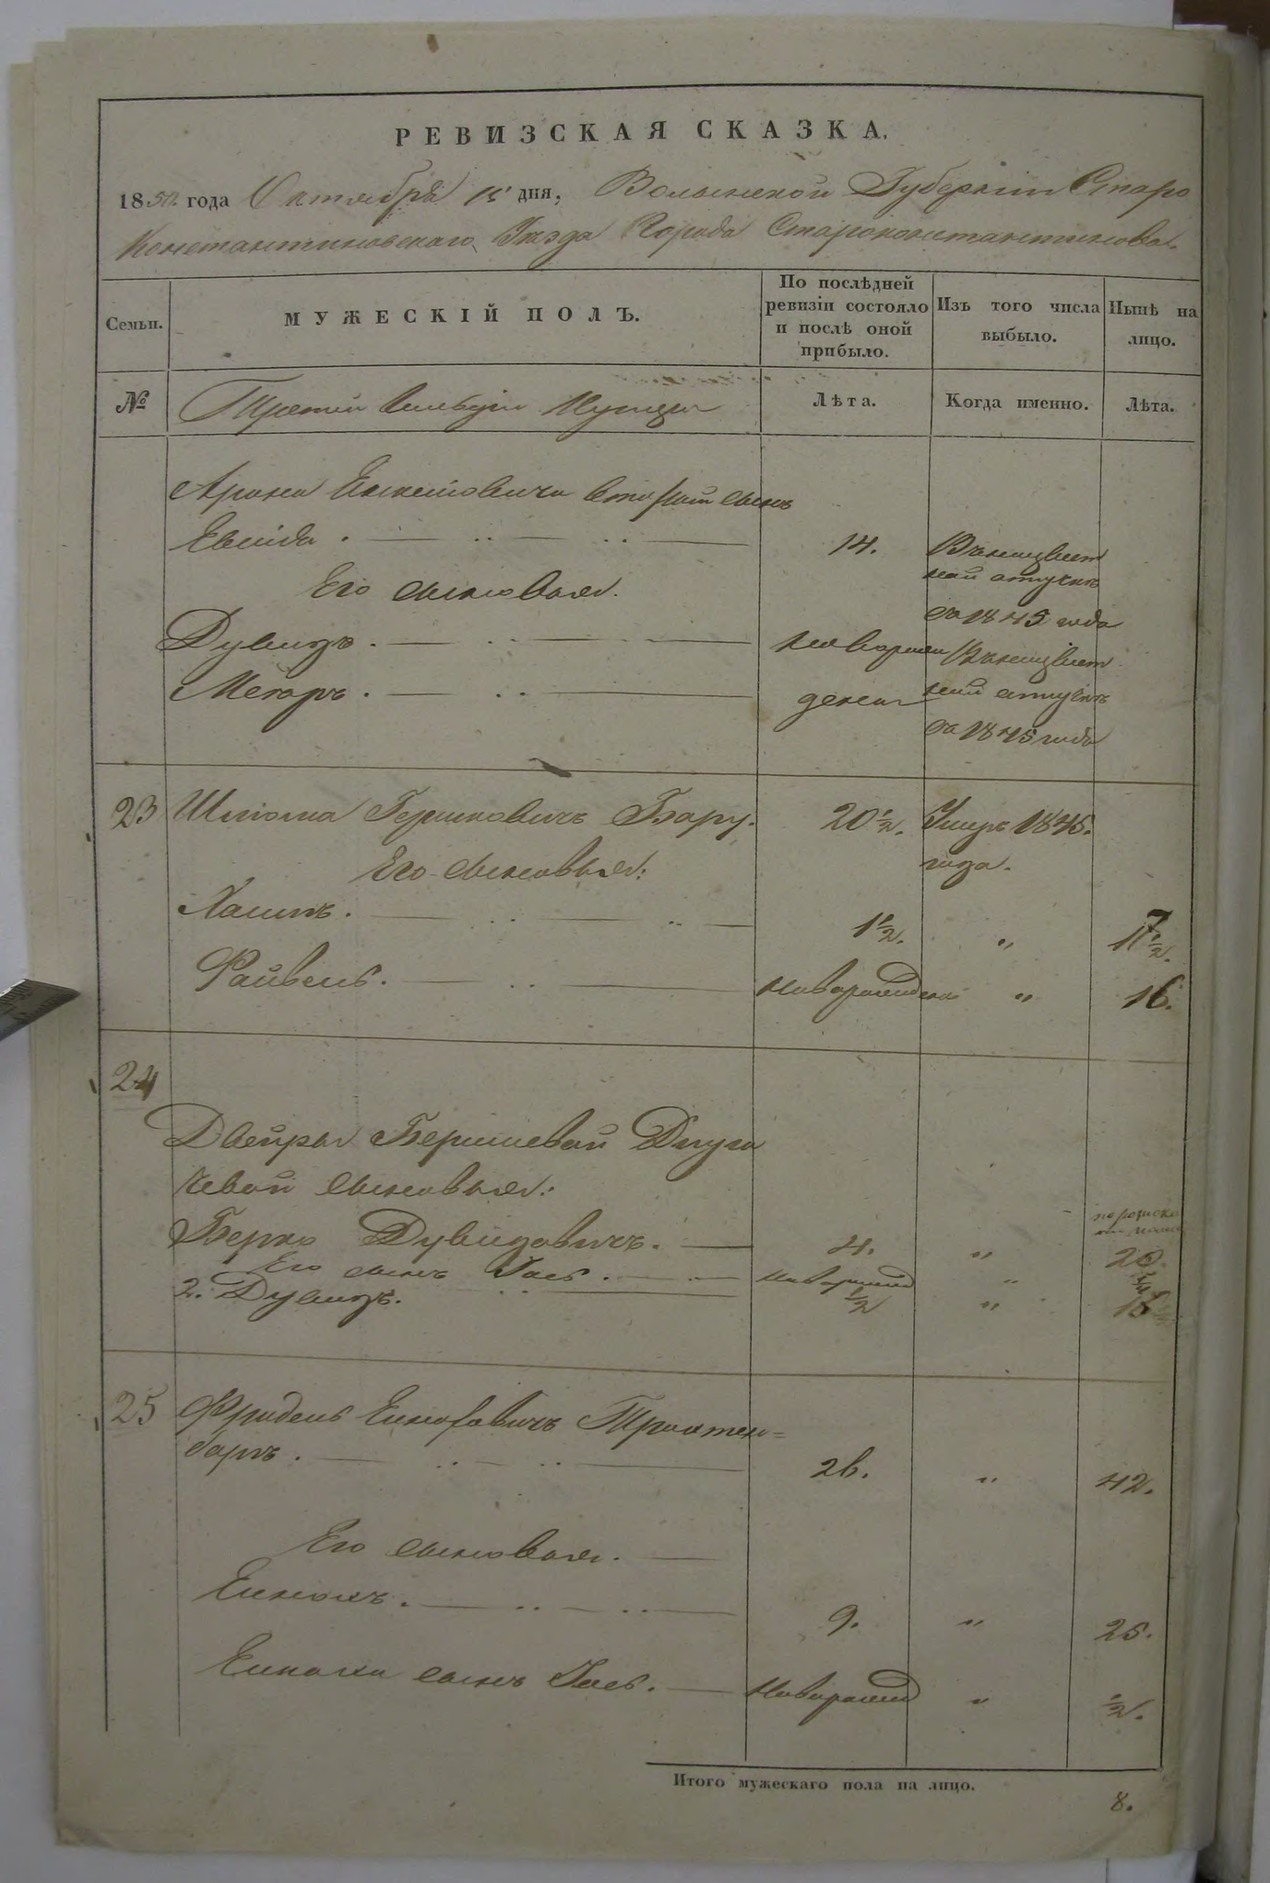 РЕВИЗСКАЯ СКАЗКА.
1850 года Октября 15 дня, Волынской Губерніи Старо
Константиновскаго Уезда Города Староконстантинова.
Семьи.
МУЖЕСКІЙ ПОЛЪ.
По послѣдней
ревизіи состояло
и послѣ оной
прибыло.
Изъ того числа
выбыло.
Нынѣ на
лицо.
№
Третій Гильдіи Купцы
Лѣта.
Когда именно.
Лѣта.
Арона вторый сынъ
14.
Въ неизвѣст
ной отлучкѣ
съ 1845 года
Его сыновья.
Дувидъ.
новорож
Въ неизвѣст
Мееръ.
денн
ной отлучкѣ
съ 1845 года
23 Шліома Гершковичъ Бару.
20½.
Умеръ 1846.
года.
Его сыновья:
Хаимъ.
1½.
"
17½.
Файвель.
новорожден
"
16.
24
Двейры Бершевой Длуга
чевой сыновья:
Берко Дувидовичъ.
4.
"
20.
Его сынъ Іось.
новорожд
"
¾
2. Дувидъ.
½
"
16½
25 Фридель Трахтен=
барть.
26.
"
42.
Его сыновья.
9.
"
25.
сынъ Іось.
новорожд
"
½.
Итого мужескаго пола на лицо.
8.